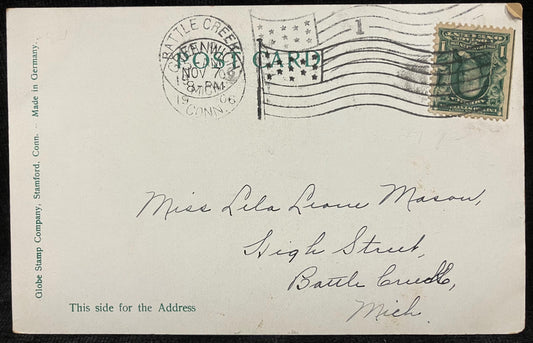 BATTLE CREEK
GREENWICH
NOV 7
8 PM
MICH.
1906
CONN.
1
POST CARD
1
Globe Stamp Company, Stamford, Conn. Made in Germany.
Miss Lela Leone Mason,
High Street,
Battle Creek,
Mich.
This side for the Address